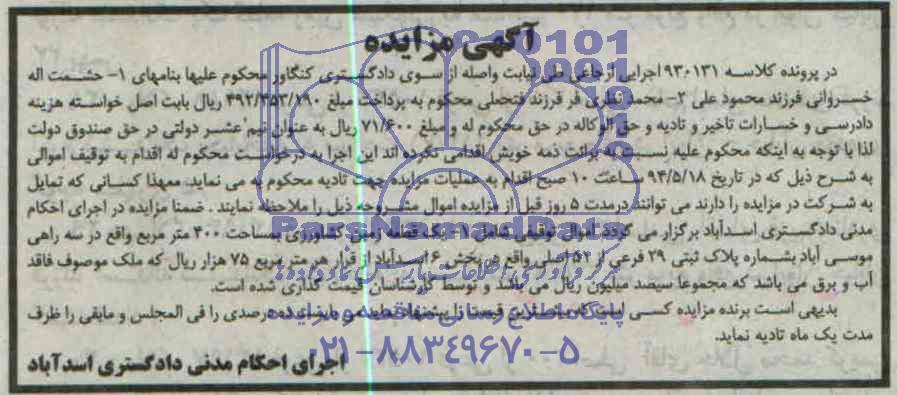 آگهی مزایده
در پرونده کلاسه ۹۳۰۱۳۱ اجرایی ارجاعی طی نیابت واصله از سوی دادگستری کنگاور محکوم علیها بنامهای ۱- حشمت اله
خسروانی فرزند محمود علی ۲- محمد نظری فر فرزند فتحعلی محکوم به پرداخت مبلغ ۴۹۲/۳۵۳/۱۹۰ ریال بابت اصل خواسته هزینه
دادرسی و خسارات تاخیر و تادیه و حق الوکاله در حق محکوم له و مبلغ ۷۱/۶۰۰ ریال به عنوان نیم عشر دولتی در حق صندوق دولت
لذا با توجه به اینکه محکوم علیه نسبت به برائت ذمه خویش اقدامی نکرده اند این اجرا به درخواست محکوم له اقدام به توقیف اموالی
به شرح ذیل که در تاریخ ۹۴/۵/۱۸ ساعت ۱۰ صبح اقدام به عملیات مزایده جهت تادیه محکوم به می نماید معهذا کسانی که تمایل
به شرکت در مزایده را دارند می توانند درمدت ۵ روز قبل از مزایده اموال مشروحه ذیل را ملاحظه نمایند . ضمنا مزایده در اجرای احکام
مدنی دادگستری اسدآباد برگزار می گردد اموال توقیفی شامل ۱- یک قطعه زمین کشاورزی بمساحت ۴۰۰ متر مربع واقع در سه راهی
موسی آباد بشماره پلاک ثبتی ۲۹ فرعی از ۵۲ اصلی واقع در بخش ۶ اسدآباد از قرار هر متر مربع ۷۵ هزار ریال که ملک موصوف فاقد
آب و برق می باشد که مجموعا سیصد میلیون ریال می باشد و توسط کارشناسان قیمت گذاری شده است.
بدیهی است برنده مزایده کسی است که بالاترین قیمت را پیشنهاد نماید و بایستی ده درصدی را فی المجلس و مابقی را ظرف
مدت یک ماه تادیه نماید.
اجرای احکام مدنی دادگستری اسدآباد
ParsNamadData
پایگاه اطلاع رسانی مناقصه و مزایده
۰۲۱-۸۸۳۴۹۶۷۰-۵